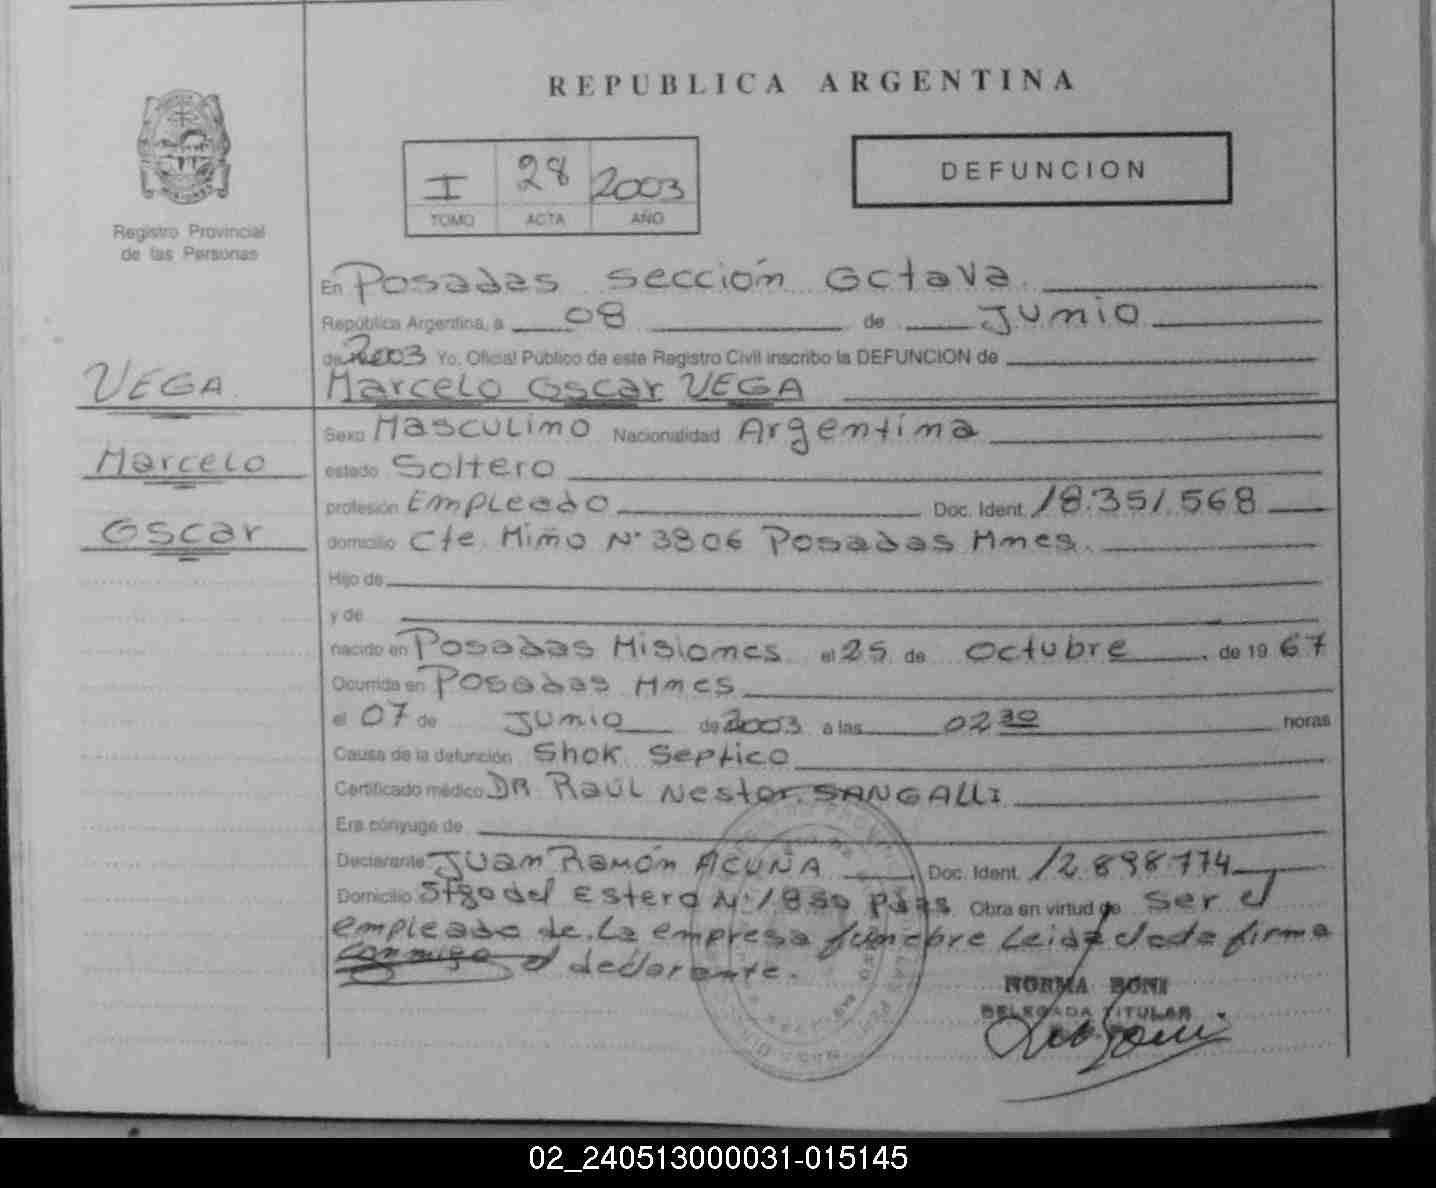 REPUBLICA ARGENTINA
I 28 2003
TOMO ACTA AÑO
DEFUNCION
Registro Provincial
de las Personas
VEGA
Marcelo
Oscar
En Posadas sección Octava
República Argentina, a 08 de Junio
de 2003 Yo, Oficial Público de este Registro Civil inscribo la DEFUNCION de
Marcelo Oscar VEGA
Sexo Masculino Nacionalidad Argentina
estado Soltero
profesión Empleado Doc. Ident. 18.351.568
domicilio Cte. Miño Nº 3806 Posadas Mnes.
Hijo de
y de
nacido en Posadas Misiones el 25 de Octubre de 19 67
Ocurrida en Posadas Mnes
el 07 de Junio de 2003 a las 02 30 horas
Causa de la defunción Shok Septico
Certificado médico DR Raúl Nestor SANGALLI
Era cónyuge de
Declarante Juan Ramón ACUÑA Doc. Ident. 12.898.774
Domicilio Stgo del Estero Nº 1850 Pdas Obra en virtud de Ser el
empleado de la empresa funebre Leida el acta firma
conmigo el declarante.
NORMA BONI
DELEGADA TITULAR
02_240513000031-015145